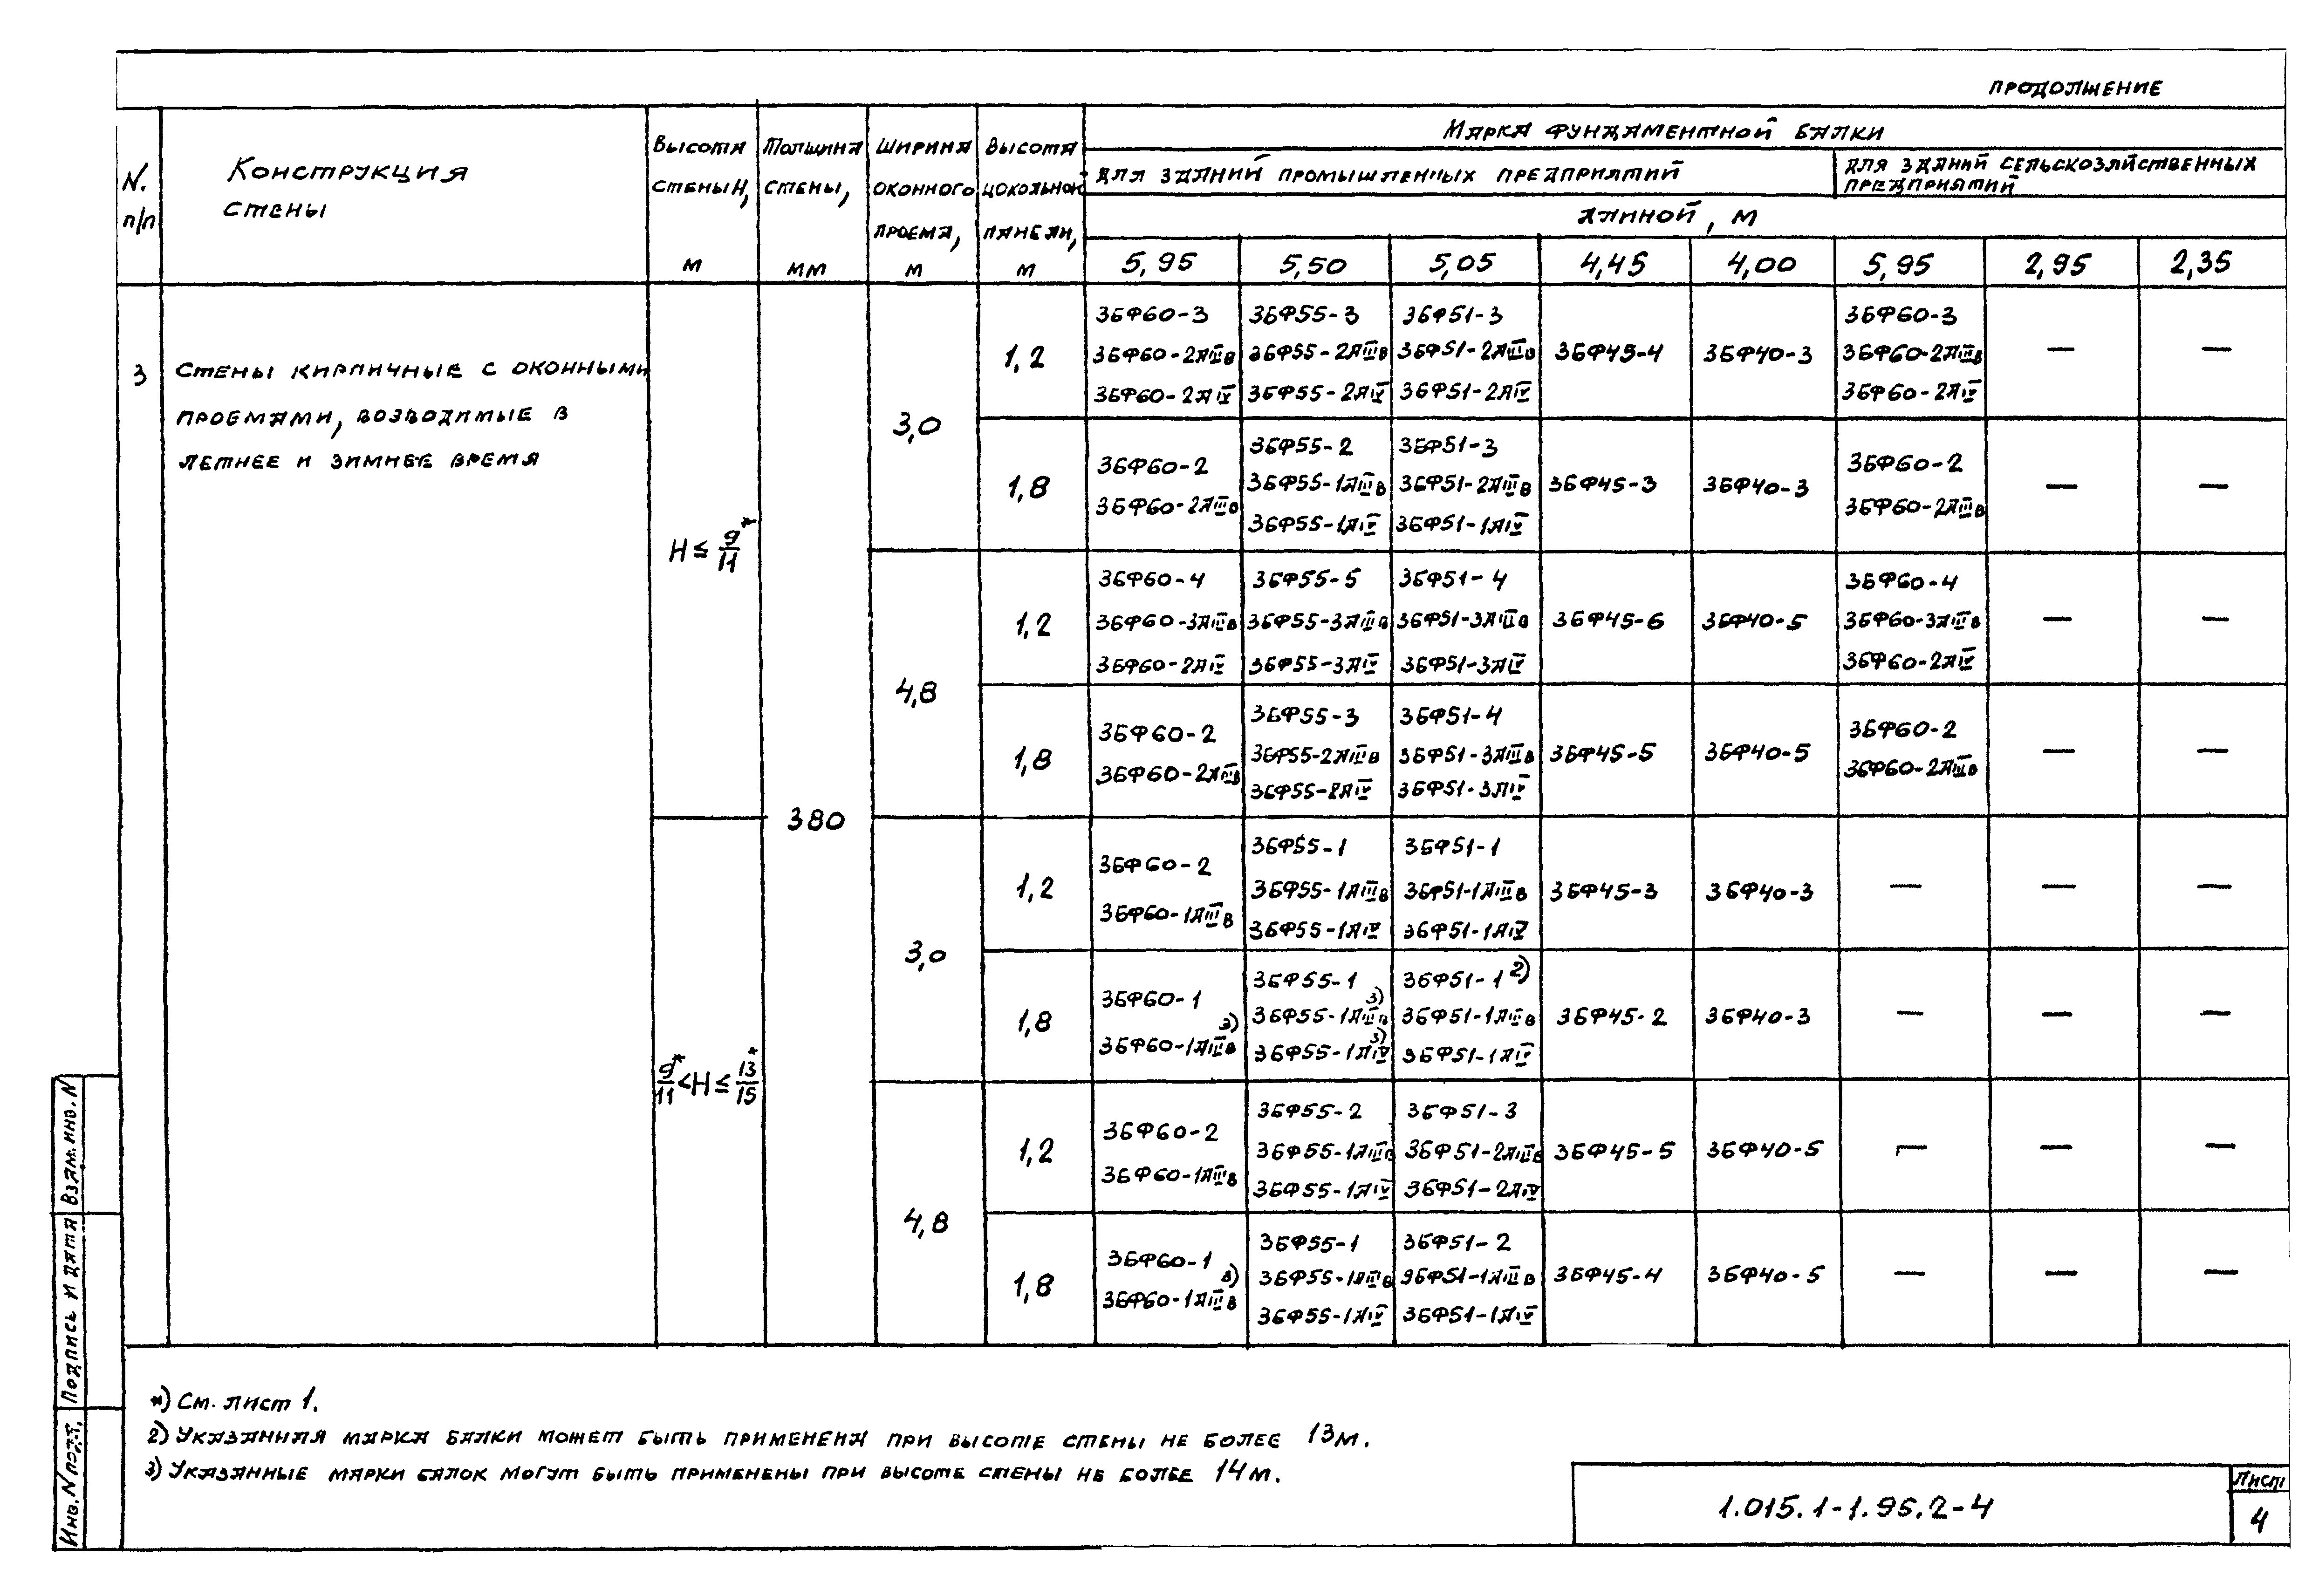 ПРОДОЛЖЕНИЕ
N. п/п
Конструкция стены
Высота стены H, м
Толщина стены, мм
Ширина оконного проема, м
Высота цокольной панели, м
Марка фундаментной балки
для зданий промышленных предприятий
для зданий сельскозяйственных предприятий
длиной, м
5,95 5,50 5,05 4,45 4,00 5,95 2,95 2,35
3
Стены кирпичные с оконными
проемами, возводимые в
летнее и зимнее время
H ≤ 9/11*
380
3,0
1,2
3БФ60-3 3БФ55-3 3БФ51-3 3БФ60-3
3БФ60-2АIIIв 3БФ55-2АIIIв 3БФ51-2АIIIв 3БФ45-4 3БФ40-3 3БФ60-2АIIIв — —
3БФ60-2АIV 3БФ55-2АIV 3БФ51-2АIV 3БФ60-2АIV
1,8
3БФ60-2 3БФ55-2 3БФ51-3 3БФ60-2
3БФ60-2АIIIв 3БФ55-1АIIIв 3БФ51-2АIIIв 3БФ45-3 3БФ40-3 3БФ60-2АIIIв — —
3БФ55-1АIV 3БФ51-1АIV
4,8
1,2
3БФ60-4 3БФ55-5 3БФ51-4 3БФ60-4
3БФ60-3АIIIв 3БФ55-3АIIIв 3БФ51-3АIIIв 3БФ45-6 3БФ40-5 3БФ60-3АIIIв — —
3БФ60-2АIV 3БФ55-3АIV 3БФ51-3АIV 3БФ60-2АIV
1,8
3БФ60-2 3БФ55-3 3БФ51-4 3БФ60-2
3БФ60-2АIIIв 3БФ55-2АIIIв 3БФ51-3АIIIв 3БФ45-5 3БФ40-5 3БФ60-2АIIIв — —
3БФ55-2АIV 3БФ51-3АIV
9/11* < H ≤ 13/15*
3,0
1,2
3БФ60-2 3БФ55-1 3БФ51-1
3БФ60-1АIIIв 3БФ55-1АIIIв 3БФ51-1АIIIв 3БФ45-3 3БФ40-3 — — —
3БФ55-1АIV 3БФ51-1АIV
1,8
3БФ60-1 3БФ55-1 3БФ51-1 2)
3БФ60-1АIIIв 3) 3БФ55-1АIIIв 3) 3БФ51-1АIIIв 3БФ45-2 3БФ40-3 — — —
3БФ55-1АIV 3) 3БФ51-1АIV
4,8
1,2
3БФ60-2 3БФ55-2 3БФ51-3
3БФ60-1АIIIв 3БФ55-1АIIIв 3БФ51-2АIIIв 3БФ45-5 3БФ40-5 — — —
3БФ55-1АIV 3БФ51-2АIV
1,8
3БФ60-1 3БФ55-1 3БФ51-2
3БФ60-1АIIIв 3) 3БФ55-1АIIIв 3БФ51-1АIIIв 3БФ45-4 3БФ40-5 — — —
3БФ55-1АIV 3БФ51-1АIV
*) См. лист 1.
2) Указанная марка балки может быть применена при высоте стены не более 13м.
3) Указанные марки балок могут быть применены при высоте стены не более 14м.
1.015.1-1.95.2-4
Лист
4
Инв. N подл. Подпись и дата Взам. инв. N